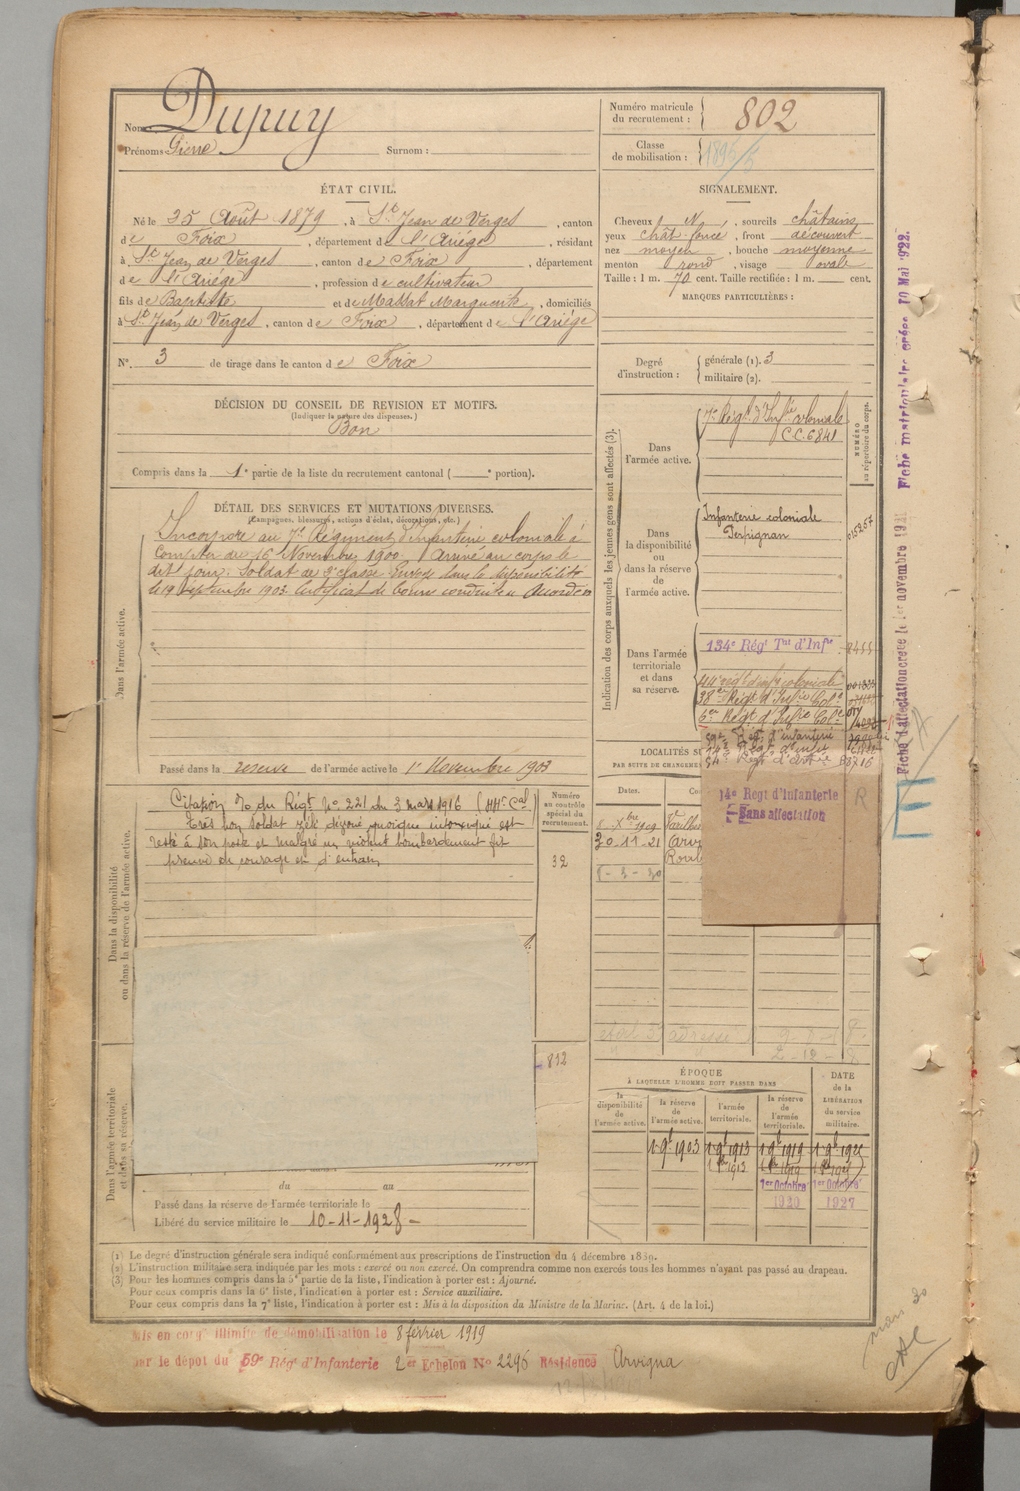 Nom: Dupuy
Prénoms: Pierre Surnom:
Numéro matricule du recrutement: 802
Classe de mobilisation:
ÉTAT CIVIL.
Né le 25 Août 1879, à St Jean de Verges, canton
de Foix, département de l'Ariège, résidant
à St Jean de Verges, canton de Foix, département
de l'Ariège, profession de cultivateur
fils de Baptiste et de Massat Marguerite, domiciliés
à St Jean de Verges, canton de Foix, département de l'Ariège
N° 3 de tirage dans le canton de Foix
SIGNALEMENT.
Cheveux N, sourcils châtains
yeux chât foncé, front découvert
nez moyen, bouche moyenne
menton rond, visage ovale
Taille: 1 m. 70 cent. Taille rectifiée: 1 m. cent.
MARQUES PARTICULIÈRES:
Degré d'instruction: générale (1). 3
militaire (2).
DÉCISION DU CONSEIL DE REVISION ET MOTIFS.
(Indiquer la nature des dispenses.)
Bon
Compris dans la 1e partie de la liste du recrutement cantonal ( e portion).
DÉTAIL DES SERVICES ET MUTATIONS DIVERSES.
(Campagnes, blessures, actions d'éclat, décorations, etc.)
Dans l'armée active.
Incorporé au 7e Régiment d'Infanterie coloniale à
compter du 16 Novembre 1900. Arrivé au corps le
dit jour. Soldat de 2e classe. Envoyé dans la disponibilité
le 19 septembre 1903. Certificat de bonne conduite Accordé
Passé dans la réserve de l'armée active le 1er Novembre 1903
Indication des corps auxquels les jeunes gens sont affectés (3).
NUMÉRO au répertoire du corps.
Dans l'armée active.
7e Régt d'Infie coloniale
C.C. 6841
Dans la disponibilité ou dans la réserve de l'armée active.
Infanterie coloniale
Perpignan
Dans l'armée territoriale et dans sa réserve.
134e Régt Tal d'Infie 8455
44e régt d'infie coloniale
38e Régt d'Infie Cole
Régt d'Infie Cole
Régt d'infanterie
LOCALITÉS
PAR SUITE DE CHANGEME
Dates.
20-11-21
14e Regt d'Infanterie
Sans affectation
R
Dans la disponibilité ou dans la réserve de l'armée active.
Citation % du Régt n° 221 du 3 mars 1916
Très bon soldat zélé dévoué quoique intoxiqué est
resté à son poste et malgré un violent bombardement fit
preuve de courage et d'entrain
Numéro au contrôle spécial du recrutement.
32
812
Dans l'armée territoriale et dans sa réserve.
du au
Passé dans la réserve de l'armée territoriale le
Libéré du service militaire le 10-11-1928
ÉPOQUE
À LAQUELLE L'HOMME DOIT PASSER DANS
la disponibilité de l'armée active.
la réserve de l'armée active.
l'armée territoriale.
la réserve de l'armée territoriale.
DATE de la LIBÉRATION du service militaire.
1 9bre 1903 1 9bre 1913 1 9bre 1919
1er Octobre 1920 1er Octobre 1927
(1) Le degré d'instruction générale sera indiqué conformément aux prescriptions de l'instruction du 4 décembre 1889.
(2) L'instruction militaire sera indiquée par les mots: exercé ou non exercé. On comprendra comme non exercés tous les hommes n'ayant pas passé au drapeau.
(3) Pour les hommes compris dans la 5e partie de la liste, l'indication à porter est: Ajourné.
Pour ceux compris dans la 6e liste, l'indication à porter est: Service auxiliaire.
Pour ceux compris dans la 7e liste, l'indication à porter est: Mis à la disposition du Ministre de la Marine. (Art. 4 de la loi.)
Mis en congé illimité de démobilisation le 8 février 1919
par le dépôt du 59e Régt d'Infanterie Echelon No 2296 Résidence Arvigna
Fiche d'affectation créée le 1er novembre 1921 Fiche matriculaire créée 10 Mai 1922.